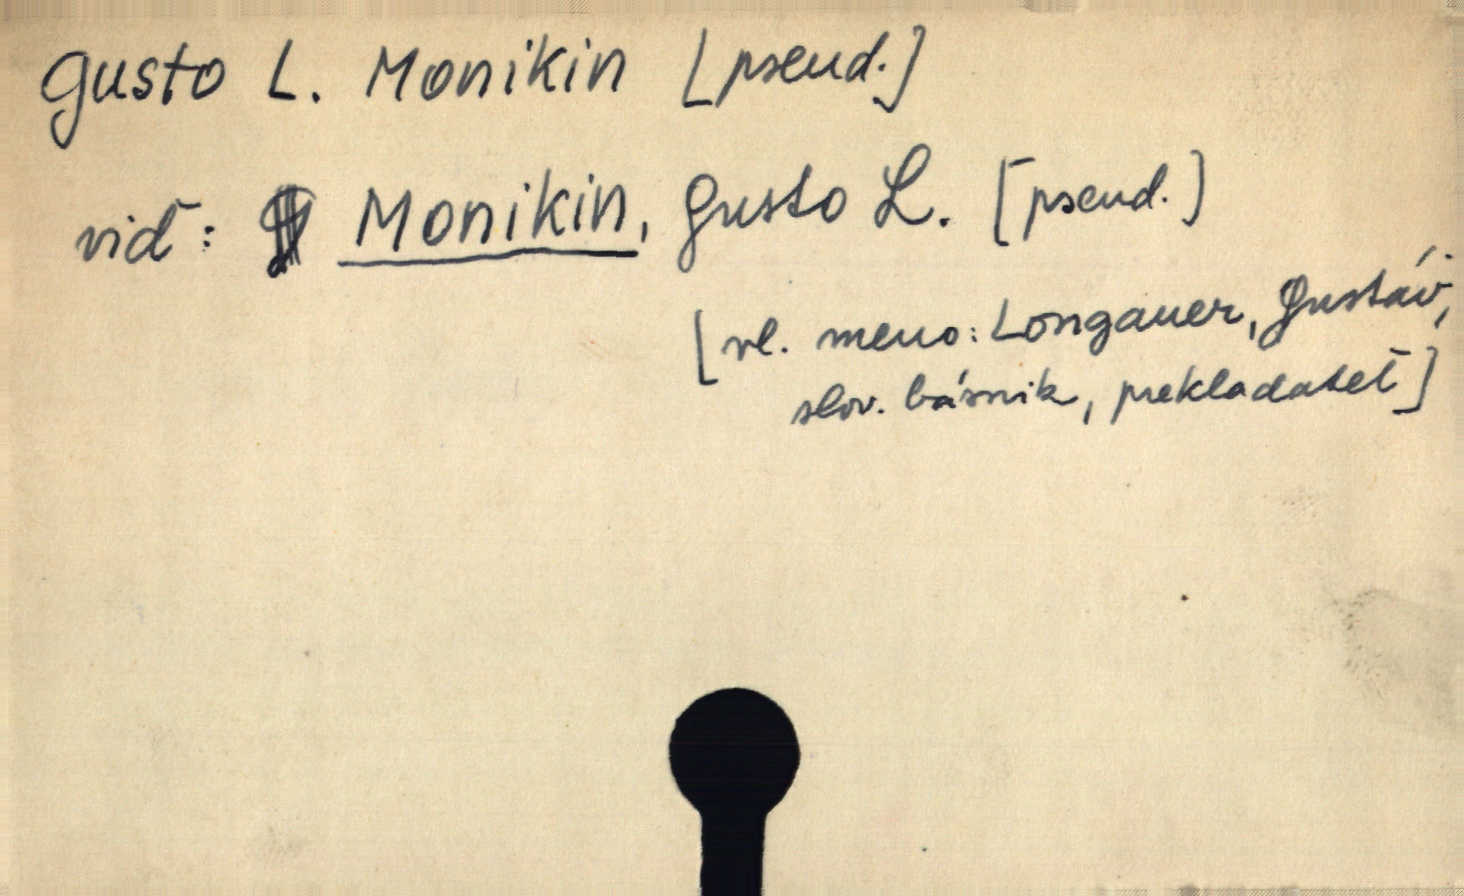 Gusto L. Monikin [pseud.]
viď: Monikin, Gusto L. [pseud.]
[vl. meno: Longauer, Gustáv,
slov. básnik, prekladateľ]